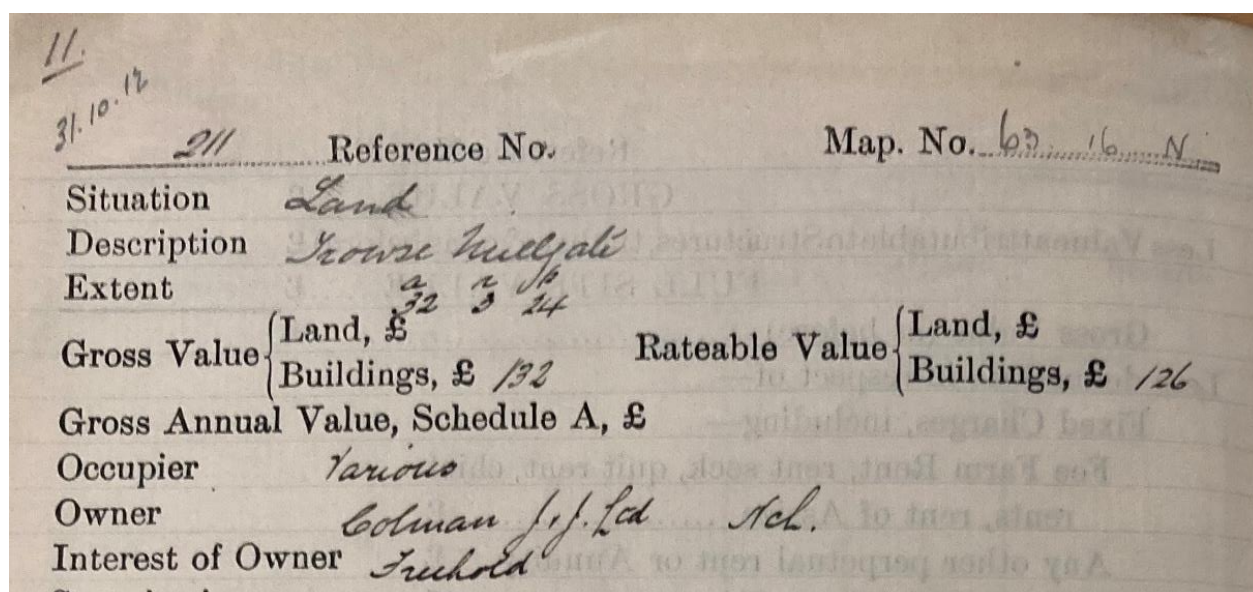 11.
31.10.12
211 Reference No. Map. No. 63 16 N
Situation Land
Description Trowse Millgate
Extent a 32 r 3 p 24
Gross Value Land, £ Rateable Value Land, £
Buildings, £ 132 Buildings, £ 126
Gross Annual Value, Schedule A, £
Occupier Various
Owner Colman J. J. Ltd Nch.
Interest of Owner Freehold